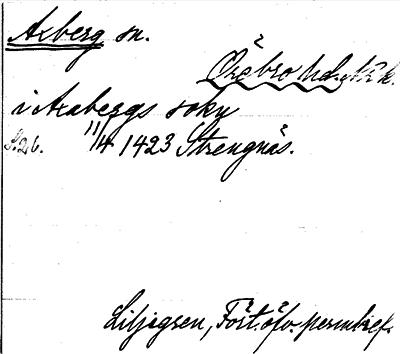 Axberg sn.
Örebro hd. Nrk.
i Axabergs sokn
S. 26. 11/4 1423 Strengnäs.
Liljegren, Fört. öfv. permbref.